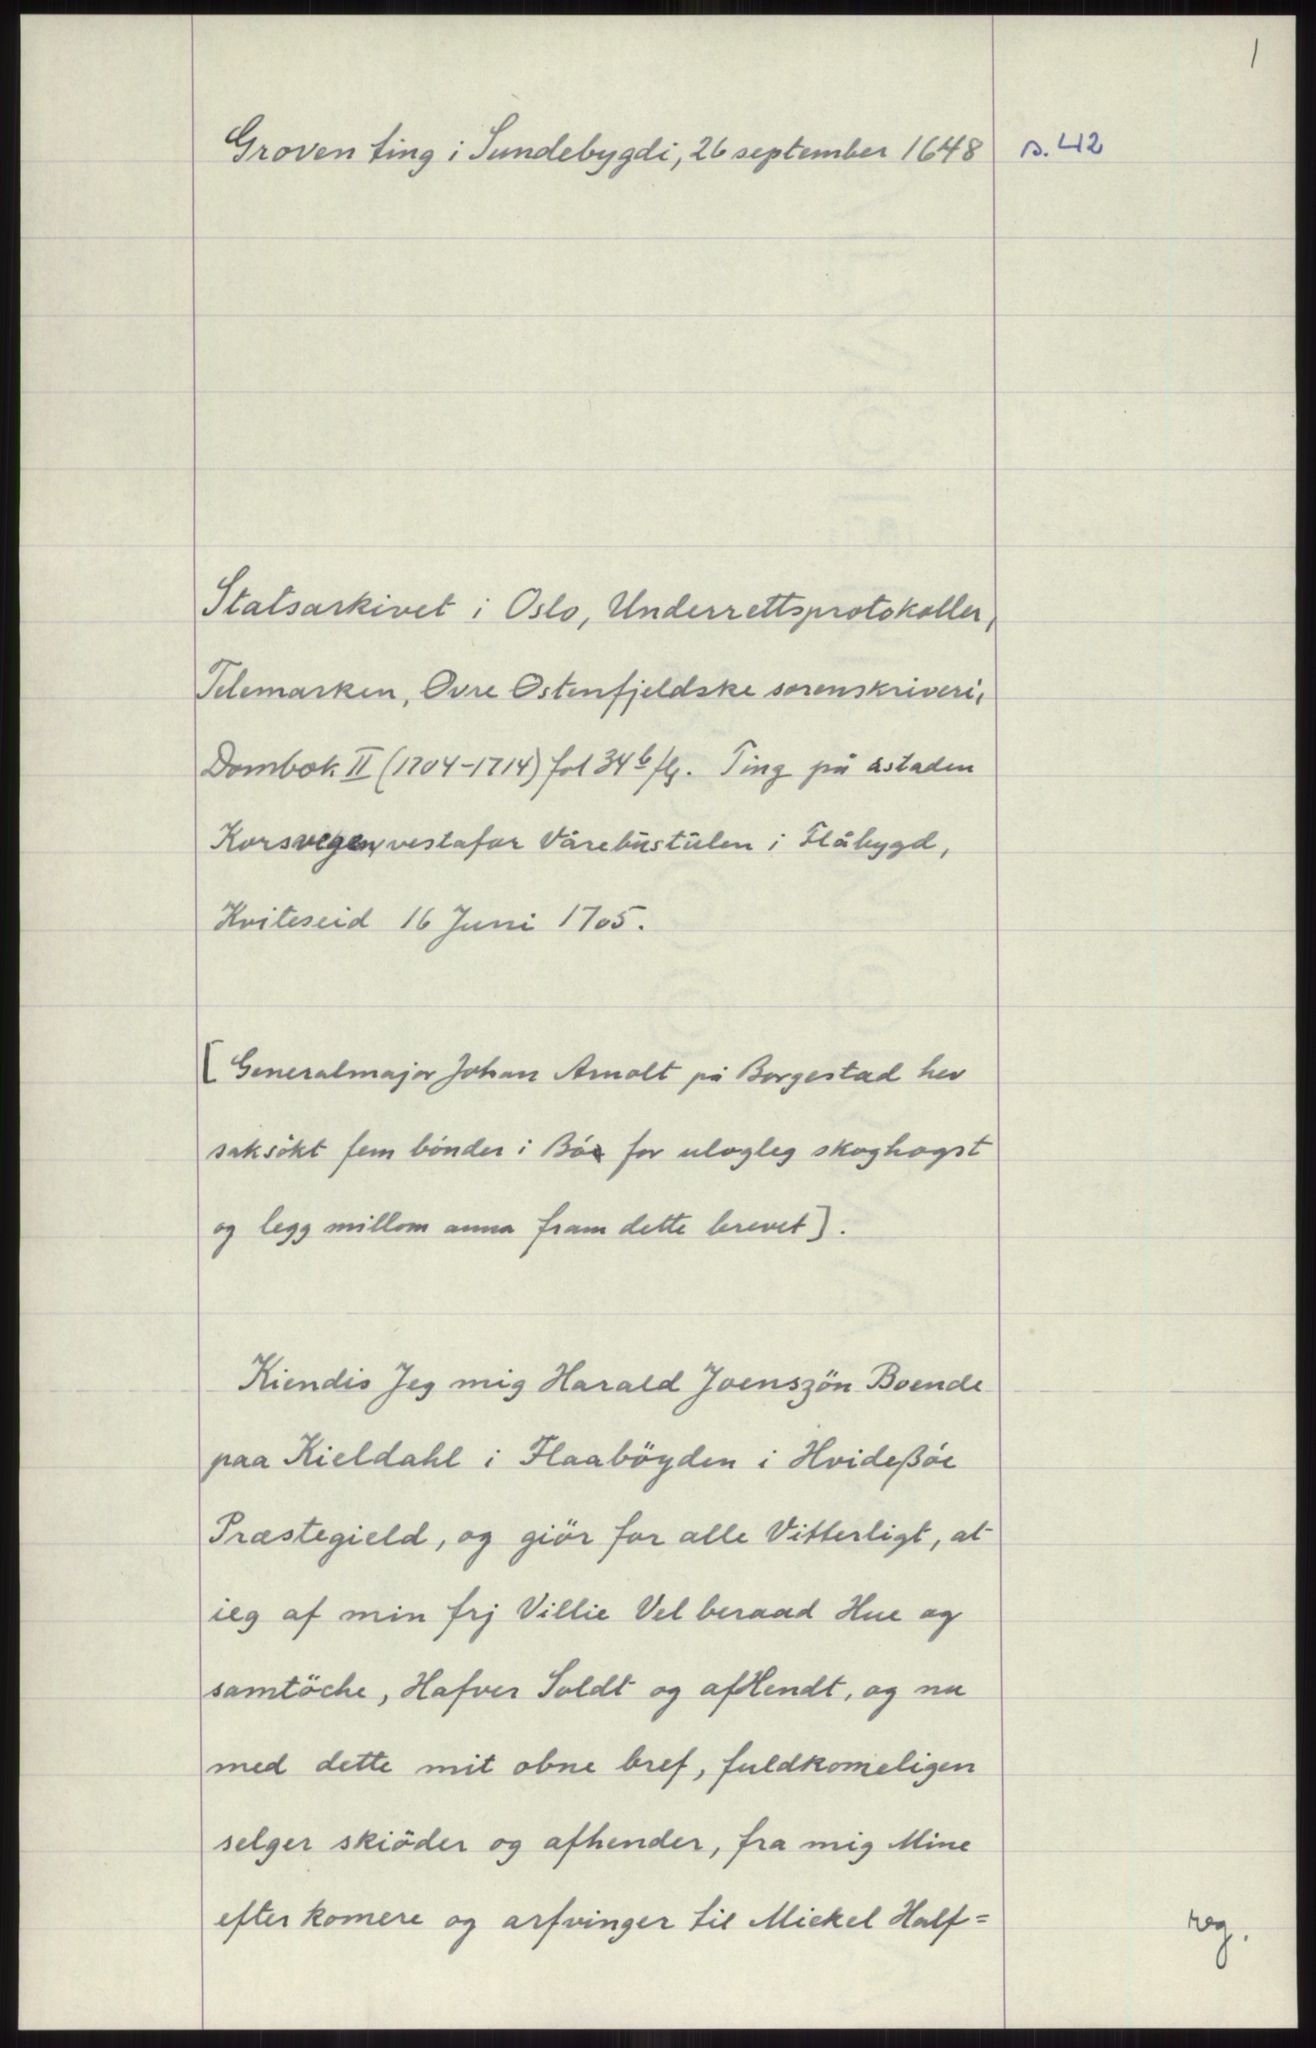 1
Groven ting i Sundebygdi, 26 september 1648
s. 42
Statsarkivet i Oslo, Underrettsprotokoller,
Telemarken, Ovre Ostenfjeldske sorenskriveri,
Dombok II (1704-1714) fol 34b flg. Ting på åstaden
Korsvegen vestafor Vårebústúlen i Flåbygd,
Kviteseid 16 Juni 1705.
[Generalmajor Johan Arnolt på Borgestad hev
saksökt fem bönder i Bö for ulogleg skoghogst
og legg millom anna fram dette brevet].
Kiendis Jeg mig Harald Joenszön Boende
paa Kieldahl i Flaaböyden i Hvideßöe
Præstegield, og giör for alle Vitterligt, at
ieg af min frj Villie Vel beraad Hue og
samtöche, Hafver Soldt og afHendt, og nu
med dette mit obne bref, fuldkomeligen
selger skiöder og afhender, fra mig Mine
efterkomere og arfvinger til Mickel Half=
reg.